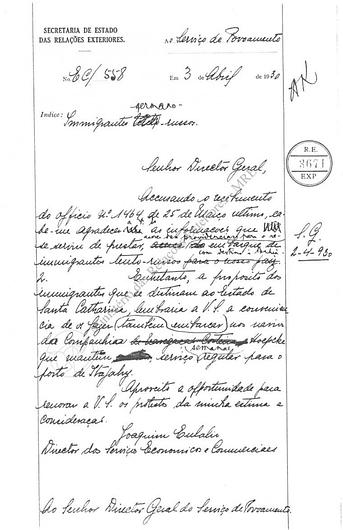 SECRETARIA DE ESTADO
DAS RELAÇÕES EXTERIORES.
Ao Serviço de Povoamento
No. EC/558
Em 3 de Abril de 1930
germano-
Indice: Immigrantes russos.
R.E.
3671
EXP
Senhor Director Geral,
Accusando o recebimento
do officio Nº 1964, de 25 de Março ultimo, ca-
be-me agradecer as informações que
se serviu de prestar, embarque de
com destino
immigrantes teuto-russos para o nosso paiz
S.G.
2-4-930
2. Entretanto, a proposito dos
immigrantes que se destinam ao Estado de
Santa Catharina, lembraria a V. S. a convenien-
cia de os fazer tambem embarcar nos navios
da Companhia Hoepcke
que mantem serviço regular para o
semanal
porto de Itajahy.
Aproveito a opportunidade para
renovar a V. S. os protestos da minha estima e
consideração.
Joaquim Eulalio
Director dos Serviços Economicos e Commerciaes
Ao Senhor Director Geral do Serviço de Povoamento.